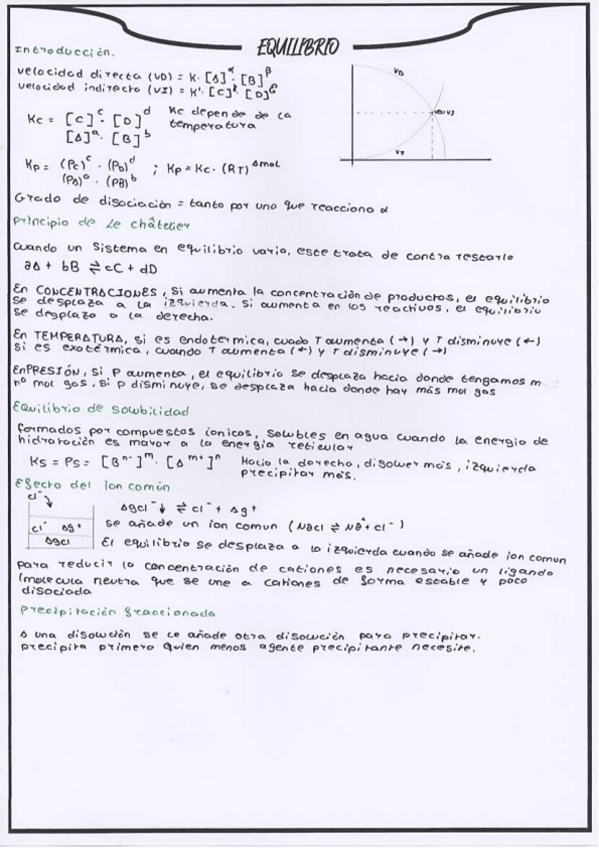 EQUILIBRIO
Introducción.
velocidad directa (VD) = K · [A]^α · [B]^β
velocidad indirecta (VI) = K' · [C]^γ · [D]^δ
VD
VD=VI
VI
Kc = [C]^c · [D]^d / [A]^a · [B]^b Kc depende de la
temperatura
Kp = (Pc)^c · (PD)^d / (PA)^a · (PB)^b ; Kp = Kc · (RT)^Δmol
Grado de disociación = tanto por uno que reacciona α
Principio de Le châtelier
Cuando un sistema en equilibrio varia, este trata de contra restarlo
aA + bB ⇌ cC + dD
En CONCENTRACIONES, si aumenta la concentración de productos, el equilibrio
se desplaza a la izquierda. Si aumenta en los reactivos, el equilibrio
se desplaza a la derecha.
En TEMPERATURA, si es endotermica, cuado T aumenta (→) y T disminuye (←)
si es exotérmica, cuando T aumenta (←) y T disminuye (→)
EnPRESIÓN, si P aumenta, el equilibrio se desplaza hacia donde tengamos m
nº mol gas, si P dismi nuye, se desplaza hacia donde hay más mol gas
Equilibrio de solubilidad
formados por compuestos ionicos, solubles en agua cuando la energia de
hidratación es mayor a la energia reticular
Ks = Ps = [B^n-]^m · [A^m+]^n Hacia la derecha, disolver más, izquierda
precipitar más.
Efecto del ion común
cl⁻
cl⁻ Ag⁺
Agcl
Agcl ↓ ⇌ cl⁻ + Ag⁺
se añade un ion comun (Nacl ⇌ Na⁺ + cl⁻)
El equilibrio se desplaza a la izquierda cuando se añade ion comun
para reducir la concentración de cationes es necesario un ligando
(molecula neutra que se une a cationes de forma estable y poco
disociada
Precipitación fraccionada
A una disolución se le añade otra disolución para precipitar.
precipita primero quien menos agente precipitante necesite.